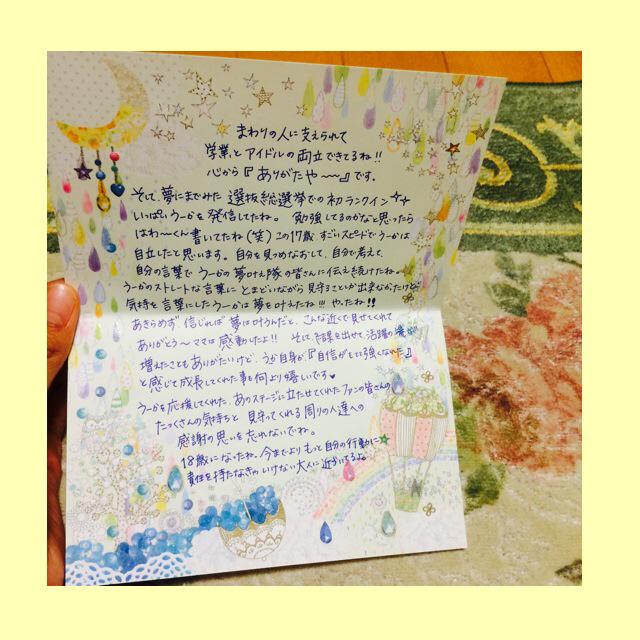 まわりの人に支えられて
学業とアイドルの両立できてるね!!
心から『ありがたや〜〜』です。
そして、夢にまでみた 選抜総選挙での初ランクイン☆☆
いっぱいうーかを発信してたね。 勉強してるのかなと思ったら
はわ〜くん書いてたね(笑)この17歳、すごいスピードでうーかは
目立したと思います。自分を見つめなおして、自分で考えて、
自分の言葉で うーかの夢叶え隊の皆さんに伝え続けたね。
うーかのストレートな言葉に とまどいながら見守ることしか出来なかったけど
気持を言葉にしたうーかは夢を叶えたね!!! やったね!!
あきらめず、信じれば 夢は叶うんだと、こんな近くで見せてくれて
ありがとう〜 ママは感動したよ!! そして、結果を出せて活躍の場が
増えたこともありがたいけど、うーか自身が『自信がもてて強くなれた』
と感じて成長してくれた事も何より嬉しいです♥
うーかを応援してくれた、あのステージに立たせてくれたファンの皆さんの
たっくさんの気持ちと 見守ってくれる周りの人達への
感謝の思いを忘れないでね。
18歳になったね。今までよりもっと自分の行動に☆
責任を持たなきゃいけない大人に近づいてるよ。